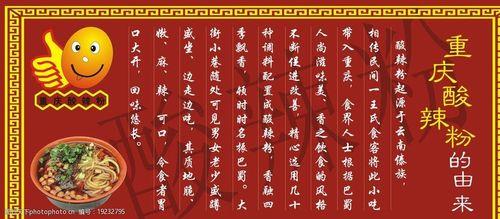 重庆酸辣粉的由来
酸辣粉起源于云南傣族，
相传民间一王氏食客将此小吃
带入重庆，食界人士根据巴蜀
人尚滋味美、香之饮食的风格
不断促进改善，精心选用几十
种调料配置成酸辣粉，香融四
季飘香，领时时名振巴蜀。大
街小巷随处可见男女老少盛蹲
盛坐、边走边吃，其质地脆、
嫩、麻、辣、可口、令食者胃
口大开，回味悠长。
重庆酸辣粉
酸辣粉